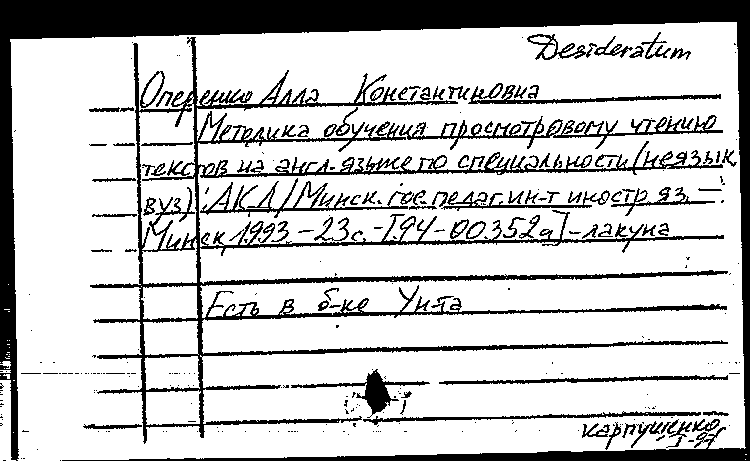 Desideratum
Оперенко Алла Константиновна
Методика обучения просмотровому чтению
текстов на англ. языке по специальности (неязык.
вуз): АКД / Минск. гос. педаг. ин-т иностр. яз. —
Минск, 1993. - 23с. - [94-00.352а] - лакуна
Есть в б-ке Ун-та
Карпушенко